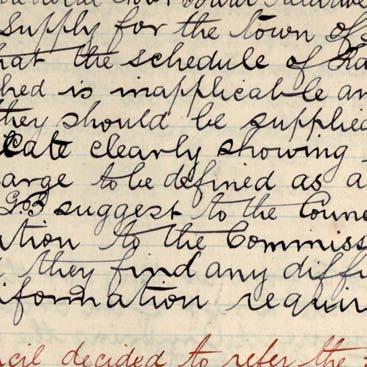 supply for the town of
hat the schedule of Ra
hed is inapplicable an
they should be supplied
icate clearly showing
arge to be defined as a
G.B suggest to the Counc
ation to the Commiss
they find any diffi
information requir
cil decided to refer the